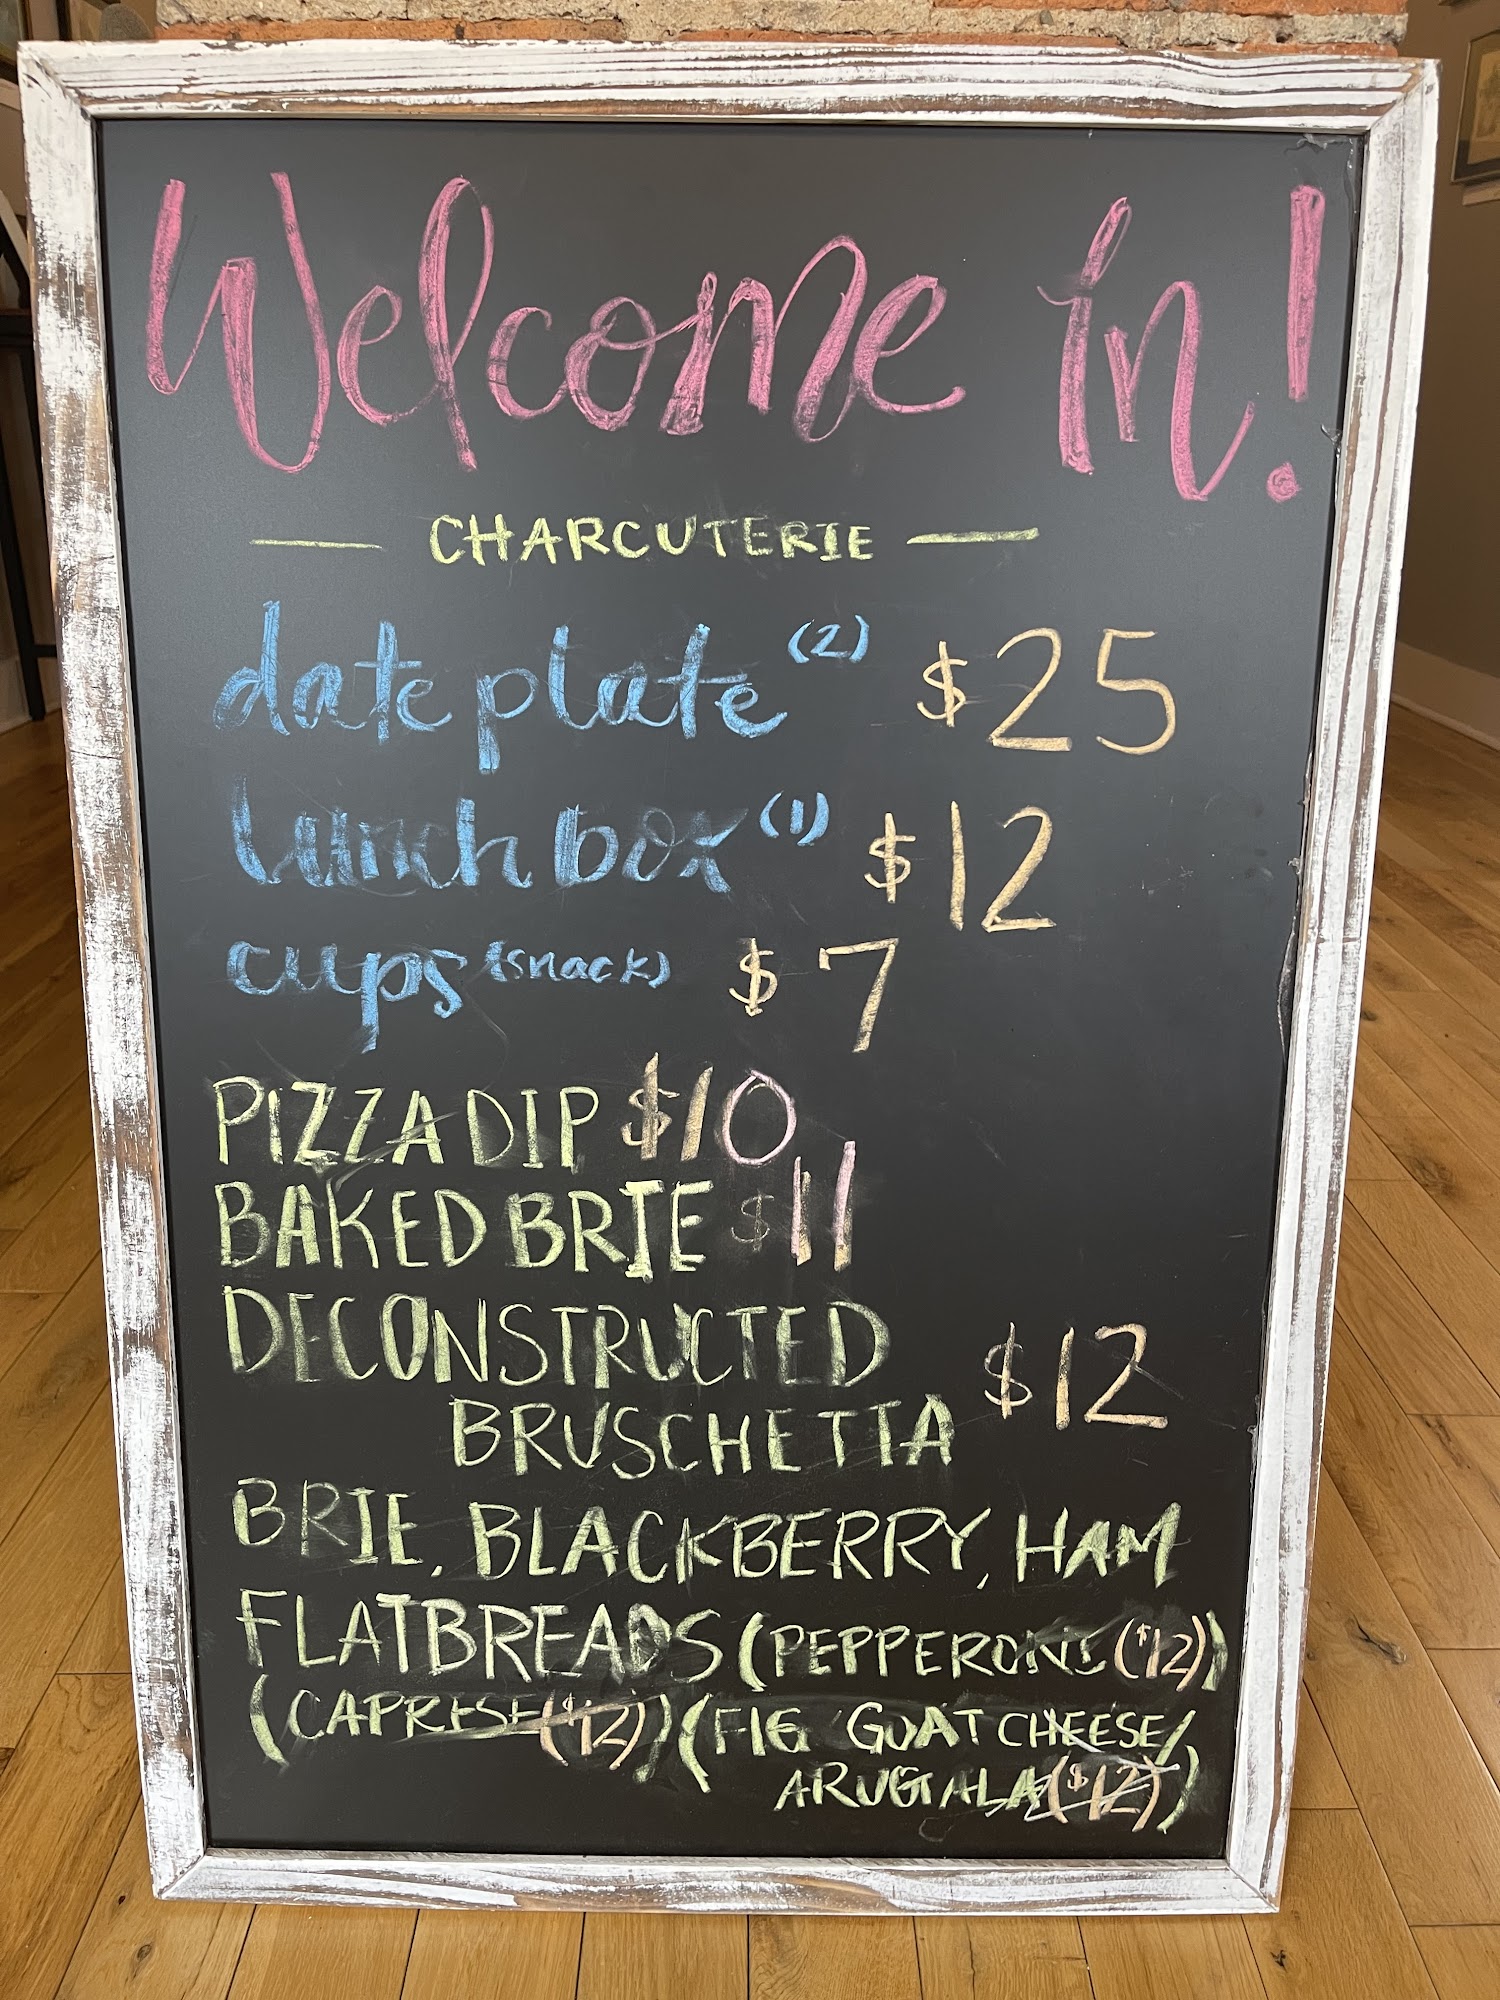 Welcome in!
CHARCUTERIE
date plate (2) $25
lunch box (1) $12
cups (snack) $7
PIZZA DIP $10
BAKED BRIE $11
DECONSTRUCTED
BRUSCHETTA $12
BRIE, BLACKBERRY, HAM
FLATBREADS (PEPPERONI ($12))
(CAPRESE ($12)) (FIG GOAT CHEESE/
ARUGALA ($12))